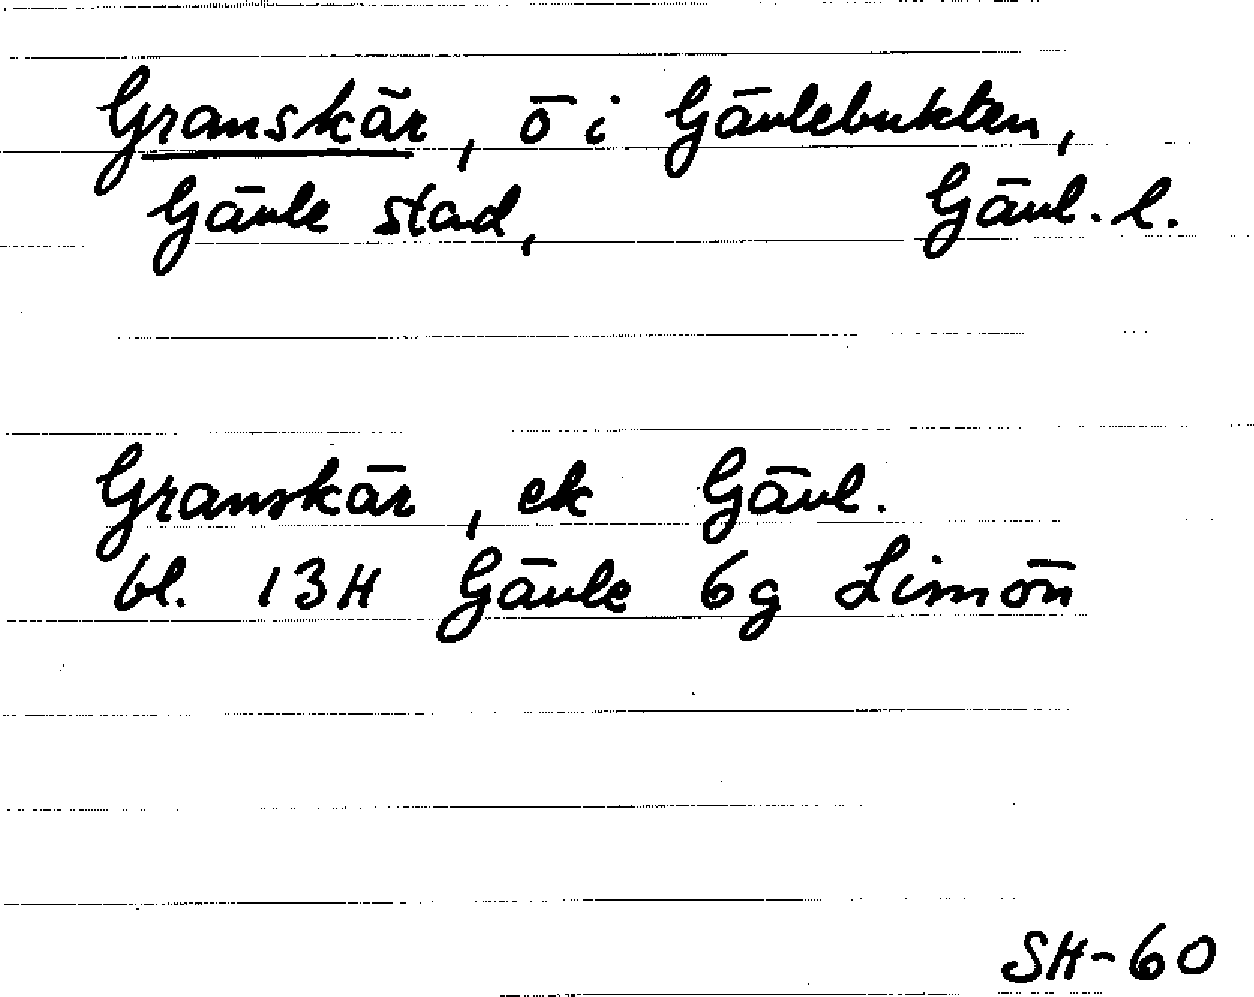 Granskär, ö i Gävlebukten,
Gävle stad, Gävl. l.
Granskär, ek Gävl.
bl. 13H Gävle 6g Limön
SH-60